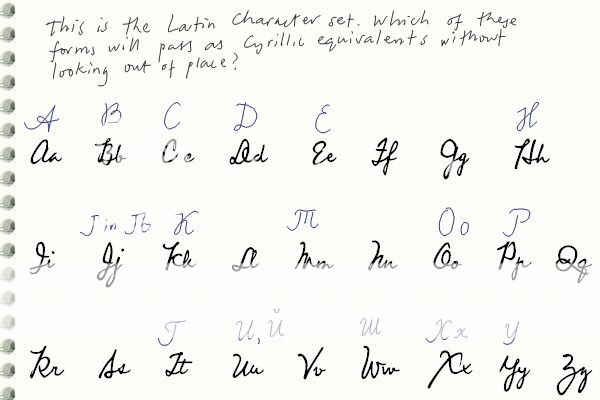 This is the Latin Character set. Which of these
forms will pass as Cyrillic equivalents without
looking out of place?
A B C D E H
Aa Bb Cc Dd Ee Ff Gg Hh
J in Jb K m Oo P
Ii Jj Kk Ll Mm Nn Oo Pp Qq
T И, Й Ш Xx У
Rr Ss Tt Uu Vv Ww Xx Yy Zz